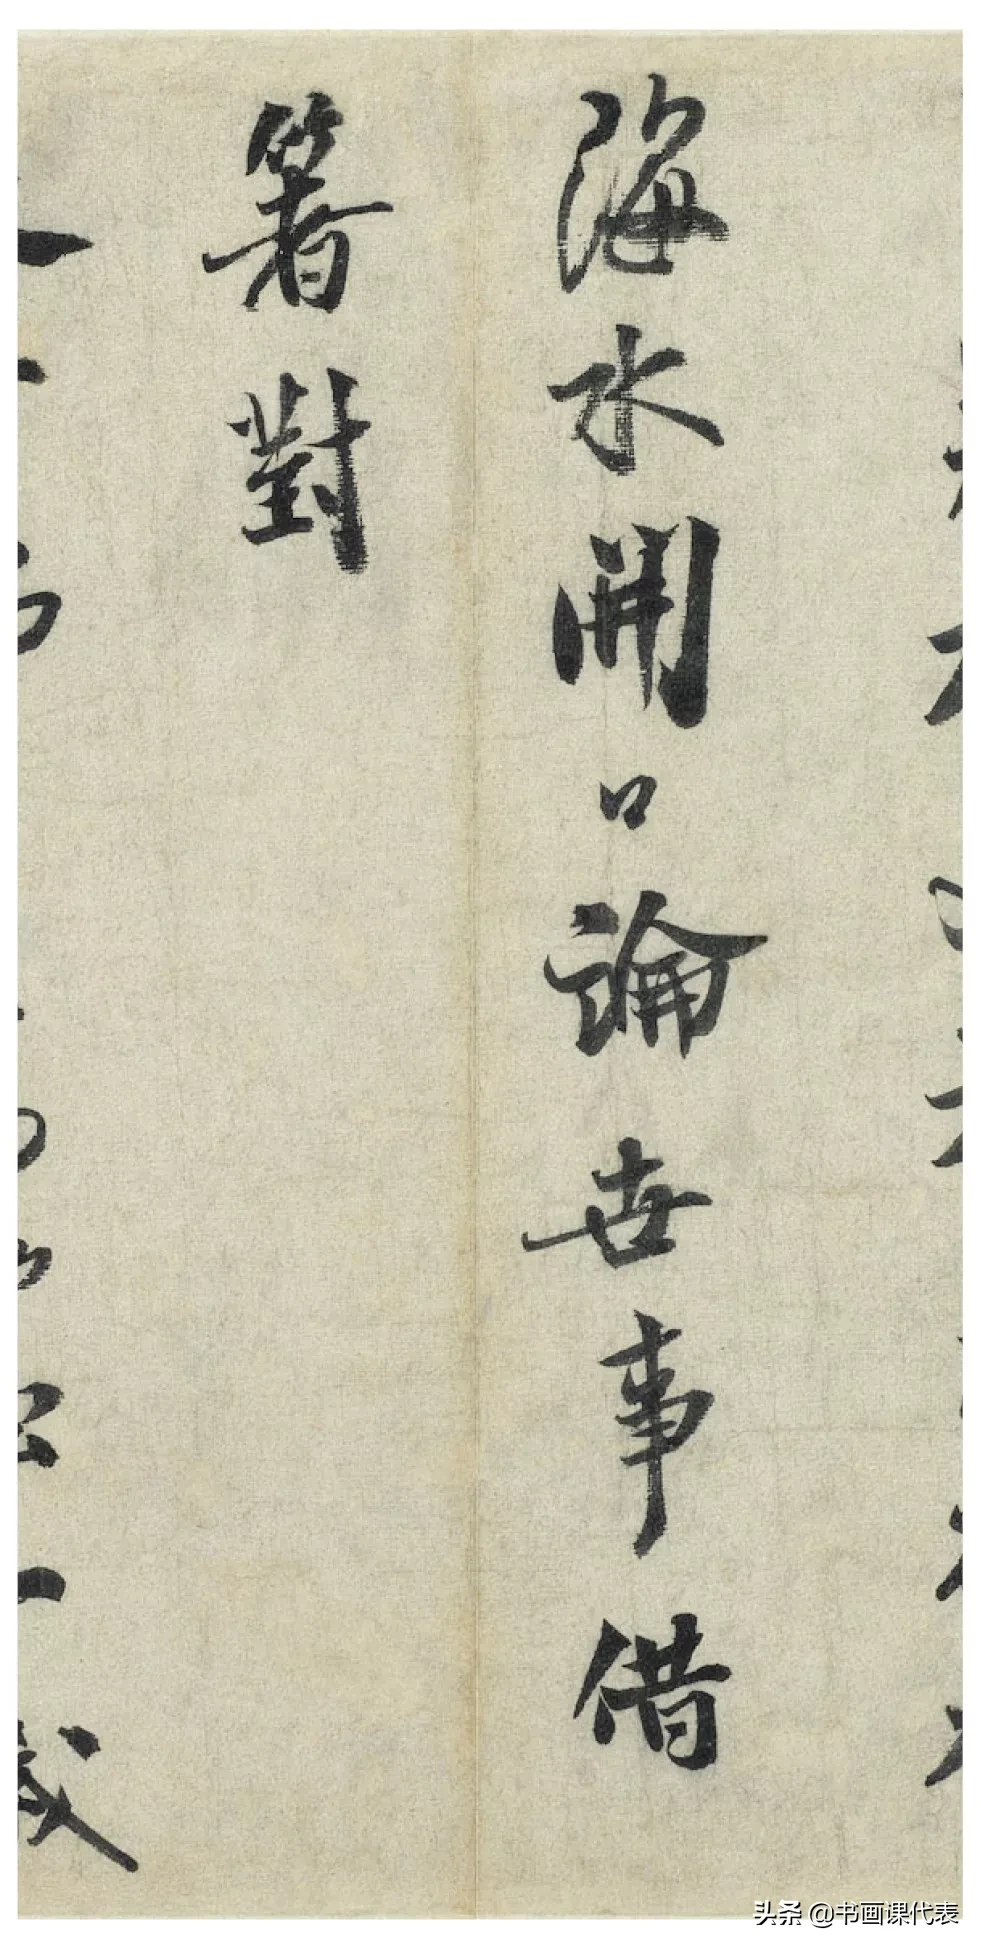 海水開口論世事借
箸對
头条 @书画课代表